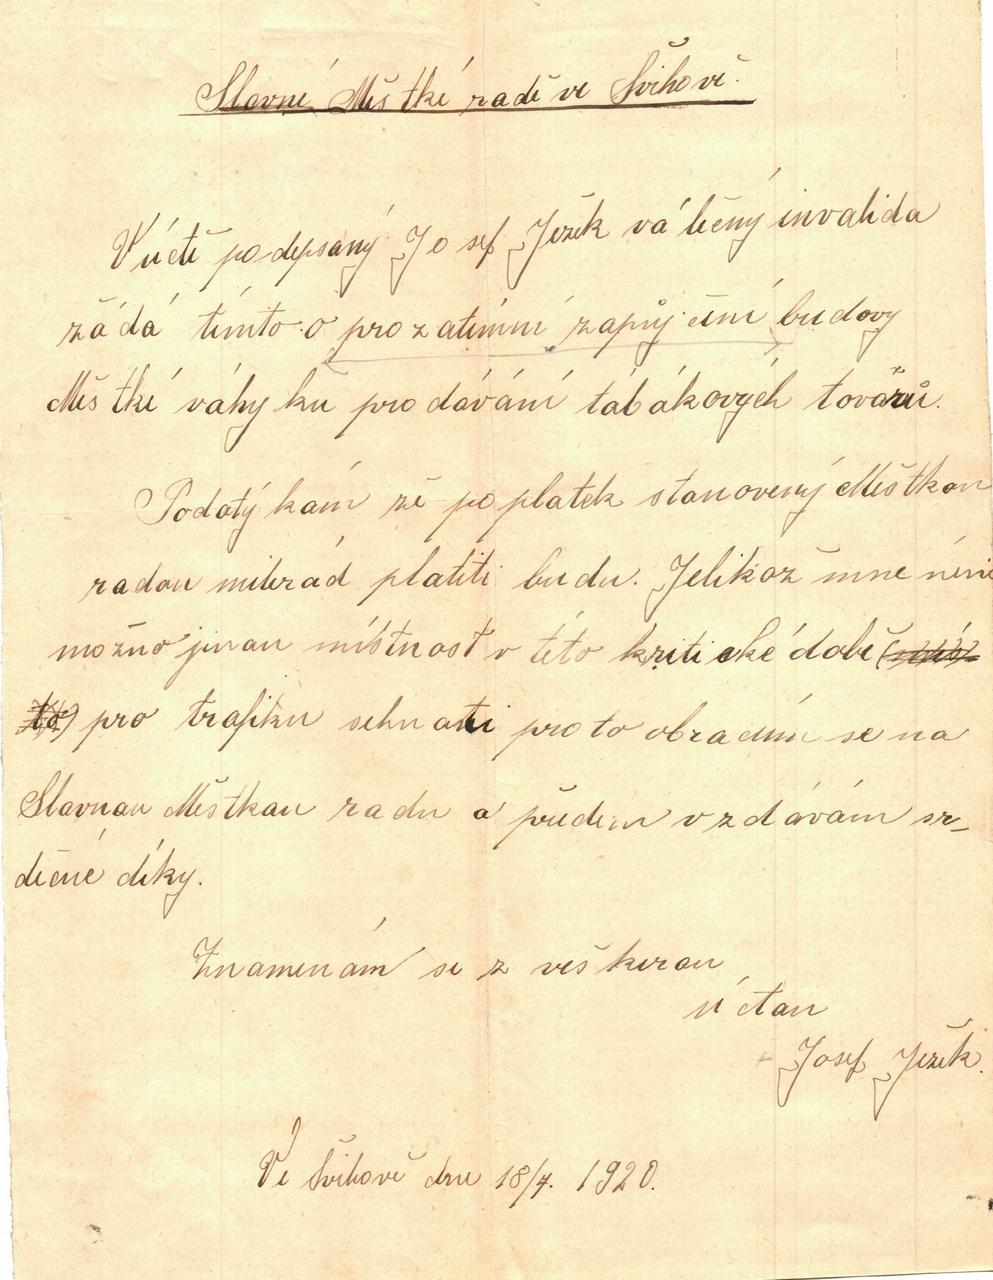 Slavné Městké radě ve Švihově.
V úctě podepsaný Josef Ježek válečný invalida
žádá tímto o prozatímní zapůjčení budovy
Městké váhy ku prodávání tabákových továrů.
Podotýkám že poplatek stanovený Městkou
radou milerád platiti budu. Jelikož mne néní
možno jinou místnost v této kritické době
pro trafiku sehnati proto obracím se na
Slavnou Městkou radu a předem vzdávám sr-
dečné díky.
Znamenám se z veškerou
úctou
Josef Ježek.
Ve Švihově dne 18/4. 1920.